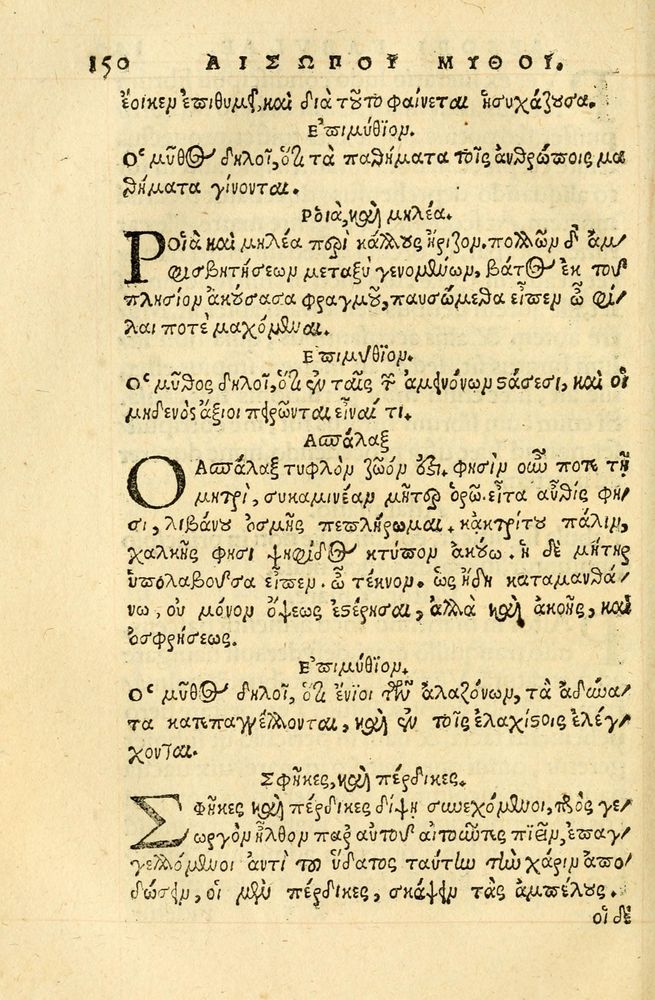 150 ΑΙΣΩΠΟΥ ΜΥΘΟΙ.
ἔοικεν ἐπιθυμεῖν, καὶ διὰ τοῦτο φαίνεται ἡσυχάζουσα.
Ἐπιμύθιον.
Ὁ μῦθος δηλοῖ, ὅτι τὰ παθήματα τοῖς ἀνθρώποις μα
θήματα γίνονται.
Ροιὰ, καὶ μηλέα.
Ροιὰ καὶ μηλέα περὶ κάλλους ἤριζον. πολλῶν δ' ἀμ-
φισβητήσεων μεταξὺ γενομένων, βάτος ἐκ τοῦ
πλησίον ἀκούσασα φραγμοῦ, παυσώμεθα εἶπεν ὦ φί-
λαι ποτὲ μαχόμεναι.
Ἐπιμύθιον.
Ὁ μῦθος δηλοῖ, ὅτι ἐν ταῖς τῶν ἀμεινόνων στάσεσι, καὶ οἱ
μηδενὸς ἄξιοι πειρῶνται εἶναί τι.
Ἀσπάλαξ
Ὁ Ἀσπάλαξ τυφλὸν ζῶόν ἐστι. φησὶν οὖν ποτε τῇ
μητρὶ, συκαμινέαν μῆτερ ὁρῶ. εἶτα αὖθίς φη-
σι, λιβάνου ὀσμῆς πεπλήρωμαι. κἀκ τρίτου πάλιν,
χαλκῆς φησι ψηφίδος κτύπον ἀκούω. ἡ δὲ μήτηρ
ὑπολαβοῦσα εἶπεν. ὦ τέκνον. ὡς ἤδη καταμανθά-
νω, οὐ μόνον ὄψεως ἐστέρησαι, ἀλλὰ καὶ ἀκοῆς, καὶ
ὀσφρήσεως.
Ἐπιμύθιον.
Ὁ μῦθος δηλοῖ, ὅτι ἔνιοι τῶν ἀλαζόνων, τὰ ἀδύνα-
τα κατεπαγγέλλονται, καὶ ἐν τοῖς ἐλαχίστοις ἐλέγ-
χονται.
Σφῆκες, καὶ πέρδικες.
Σφῆκες καὶ πέρδικες δίψῃ συνεχόμενοι, πρὸς γε-
ωργὸν ἦλθον παρ' αὐτοῦ αἰτοῦντες πιεῖν, ἐπαγ-
γελλόμενοι ἀντὶ τοῦ ὕδατος ταύτην τὴν χάριν ἀπο-
δώσειν, οἱ μὲν πέρδικες, σκάψειν τὰς ἀμπέλους.
οἱ δὲ